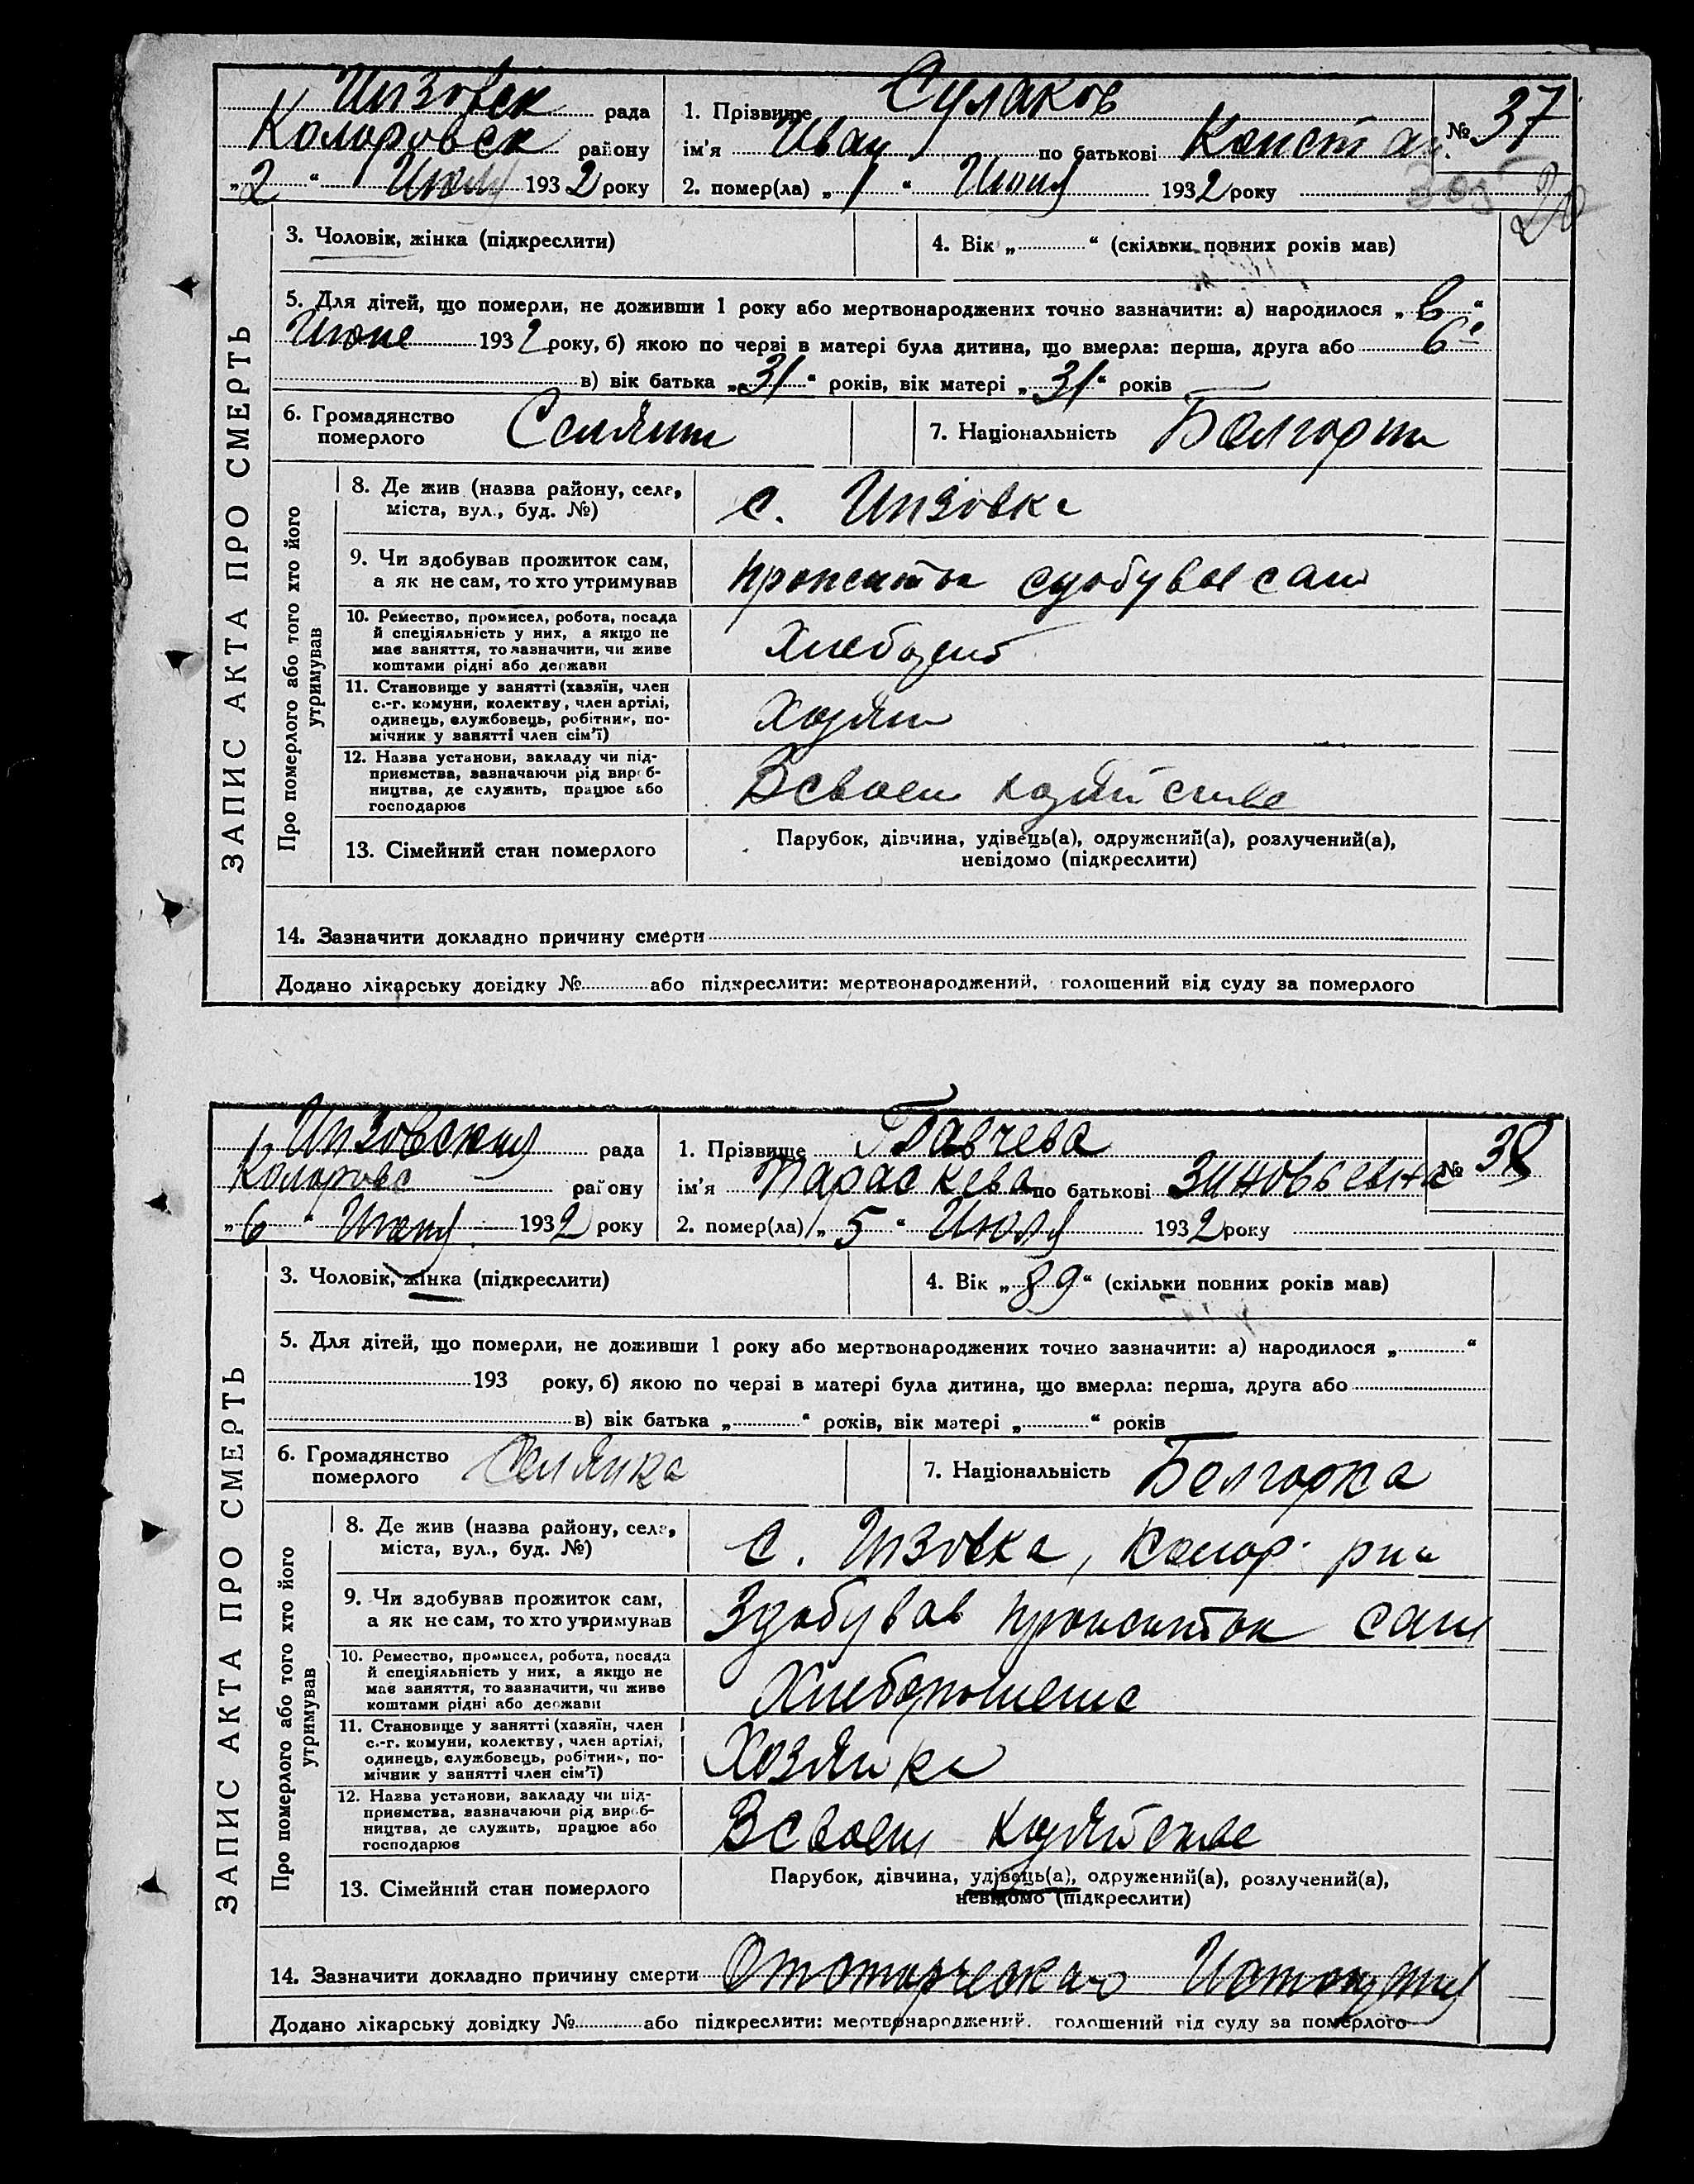 Инзовск рада
Коларовск району
„2“ Июля 1932 року
1. Прізвище Сулаков
ім'я Иван по батькові Констан. № 37
2. помер(ла) „1“ Июля 1932 року
20
ЗАПИС АКТА ПРО СМЕРТЬ
3. Чоловік, жінка (підкреслити)
4. Вік „ “ (скільки повних років мав)
5. Для дітей, що померли, не доживши 1 року або мертвонароджених точно зазначити: а) народилося „в“
Июне 1932 року, б) якою по черзі в матері була дитина, що вмерла: перша, друга або 6е
в) вік батька „31“ років, вік матері „31“ років
6. Громадянство
померлого
Селянин
7. Національність Болгорин
Про померлого або того хто його
утримував
8. Де жив (назва району, села,
міста, вул., буд. №)
с. Инзовка
9. Чи здобував прожиток сам,
а як не сам, то хто утримував
прожиток сам
10. Ремество, промисел, робота, посада
й спеціяльність у них, а якщо не
має заняття, то зазначити, чи живе
коштами рідні або держави
11. Становище у занятті (хазяїн, член
с.-г. комуни, колективу, член артілі,
одинець, службовець, робітник, по-
мічник у занятті член сім'ї)
Хозяин
12. Назва установи, закладу чи під-
приємства, зазначаючи рід вироб-
ництва, де служить, працює або
господарює
В своем хозяйстве
13. Сімейний стан померлого
Парубок, дівчина, удівець(а), одружений(а), розлучений(а),
невідомо (підкреслити)
14. Зазначити докладно причину смерти
Додано лікарську довідку № або підкреслити: мертвонароджений, голошений від суду за померлого
Инзовский рада
Коларовс району
„6“ Июля 1932 року
1. Прізвище Главчева
ім'я Параскева по батькові Зиновьевна № 38
2. помер(ла) „5“ Июля 1932 року
ЗАПИС АКТА ПРО СМЕРТЬ
3. Чоловік, жінка (підкреслити)
4. Вік „89“ (скільки повних років мав)
5. Для дітей, що померли, не доживши 1 року або мертвонароджених точно зазначити: а) народилося „ “
193 року, б) якою по черзі в матері була дитина, що вмерла: перша, друга або
в) вік батька „ “ років, вік матері „ “ років
6. Громадянство
померлого
Селянка
7. Національність Болгорка
Про померлого або того хто його
утримував
8. Де жив (назва району, села,
міста, вул., буд. №)
с. Инзовка, Колар.
9. Чи здобував прожиток сам,
а як не сам, то хто утримував
Здобував прожиток сам
10. Ремество, промисел, робота, посада
й спеціяльність у них, а якщо не
має заняття, то зазначити, чи живе
коштами рідні або держави
11. Становище у занятті (хазяїн, член
с.-г. комуни, колективу, член артілі,
одинець, службовець, робітник, по-
мічник у занятті член сім'ї)
Хозяйка
12. Назва установи, закладу чи під-
приємства, зазначаючи рід вироб-
ництва, де служить, працює або
господарює
В своем хозяйстве
13. Сімейний стан померлого
Парубок, дівчина, удівець(а), одружений(а), розлучений(а),
невідомо (підкреслити)
14. Зазначити докладно причину смерти
Додано лікарську довідку № або підкреслити: мертвонароджений, голошений від суду за померлого